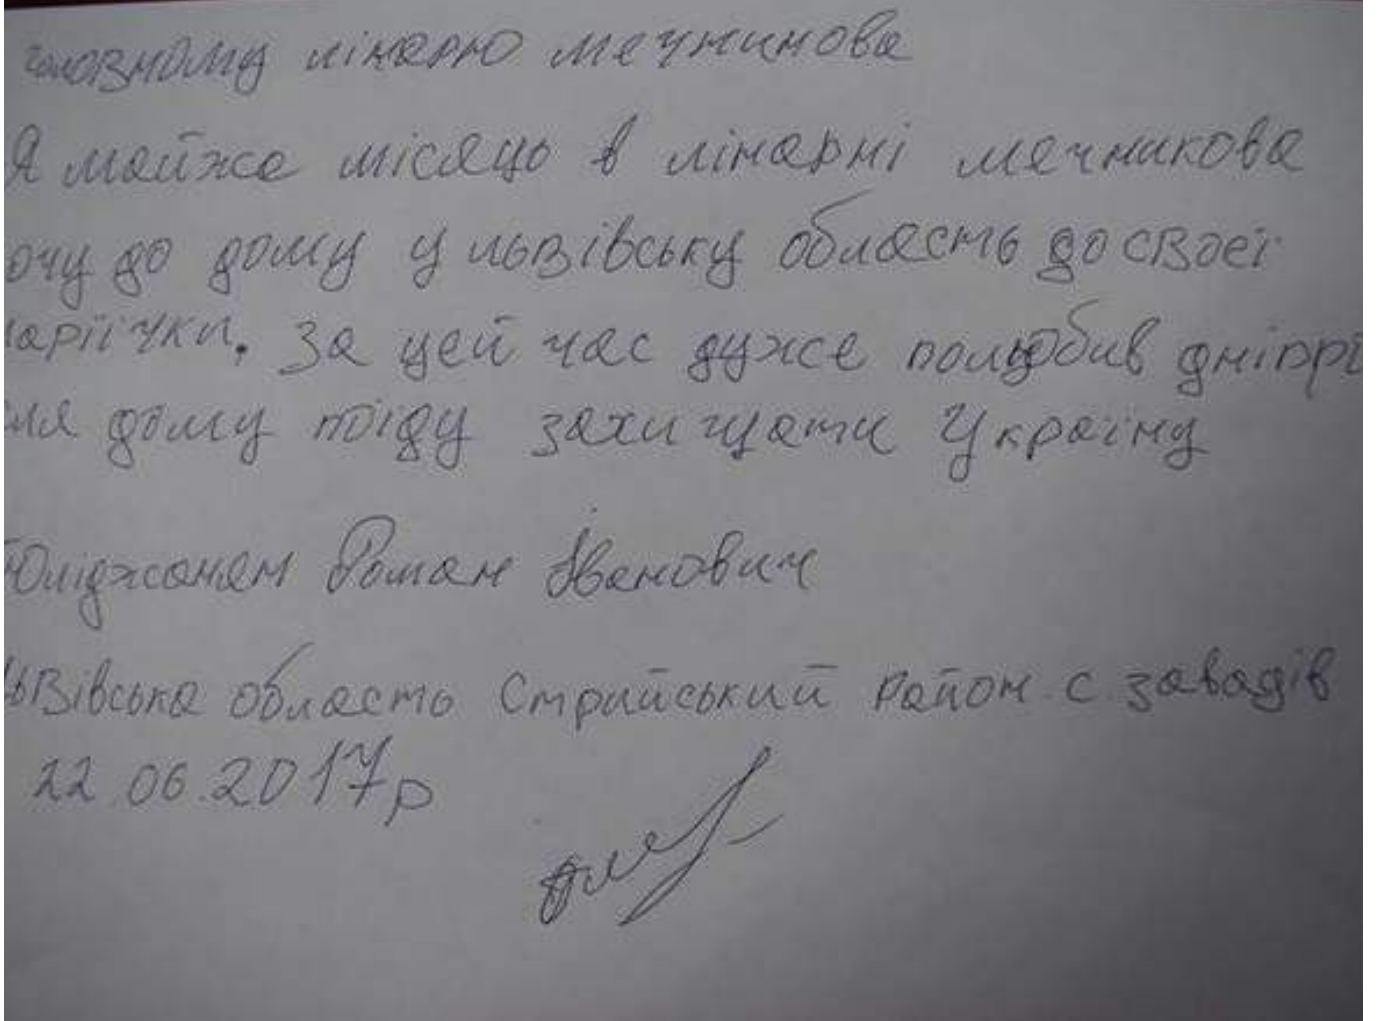 головному лікарю мечникова
Я майже місяць в лікарні мечникова
очу до дому у львівську область до своєї
аріїчки. За цей час дуже полюбив дніпрі
ля дому поїду захищати Україну
Роман Іванович
ьвівська область Стрийський район с. завадів
22.06.2017р